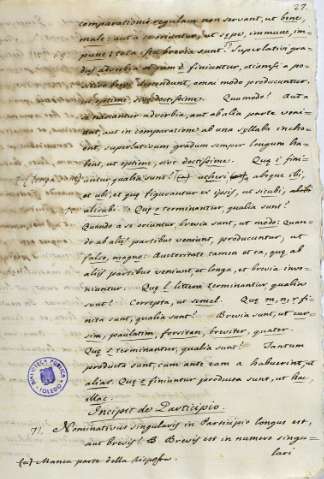 27.
comparationis regulam non servant, ut bene,
male: aut a coriuntur, ut sępe, immune, im-
pune: tota ista brevia sunt? Superlativi gra-
dus adverbia etiam è finiuntur, etiamsi a po-
sitivo descendunt, omni modo producuntur,
ut optime, doctissime. Quomodo? Aut a
nominantur adverbia, aut ab alia parte veni-
unt, aut in comparatione ab una syllaba incho-
ant, superlativum gradum semper longum ha-
bent, ut optime, sive doctissime. Quę i fini-
untur, qualia sunt? (a) absque ibi,
et ubi, et quę figurantur ex ipsis, ut sicubi, alibi
alicubi? Quę o terminantur, qualia sunt?
Quando a se oriuntur brevia sunt, ut modo: Quan-
do ab aliis partibus veniunt, producuntur, ut
falso, magno: Austeritate tamen et ea, quę ab
aliis partibus veniunt, et longa, et brevia inve-
niuntur. Quę l littera terminantur, qualia
sunt? Correpta, ut semel. Quę m, n, r fi-
nita sunt, qualia sunt? Brevia sunt, ut cur-
sim, paulatim, forsitan, breviter, quater.
Quę s terminantur, qualia sunt? Tantum
producta sunt, cum ante eam a habuerint, ut
alias. Quę c finiuntur producta sunt, ut hac
illac.
Incipit de Participio.
71. Nominativus singularis in Participio longus est,
aut brevis? R. Brevis est in numero singu-
lari
(a) Manca parte della risposta.
BIBLIOTECA PUBLICA
TOLEDO